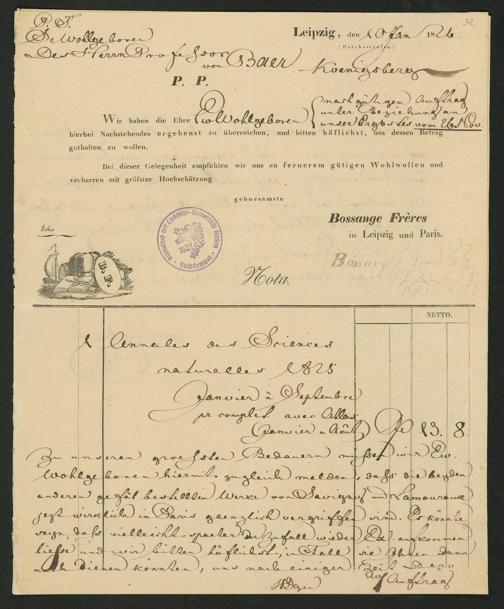 32
P. T.
Se Wohlgeboren
Leipzig, den 10 Jan 1826
(Reichsstrasse)
Des Herrn Professor
von Baer
Koenigsberg
P. P.
Wir haben die Ehre Ew Wohlgeboren
nach gütigen Auftrag
unter Beziehung an
unser Ergebstes vom 26st Nov.
hierbei Nachstehendes ergebenst zu überreichen, und bitten höflichst, uns dessen Betrag
guthalten zu wollen.
Bei dieser Gelegenheit empfehlen wir uns zu fernerem gütigen Wohlwollen und
verharren mit gröfster Hochschätzung
gehorsamste
Bossange Frères
in Leipzig und Paris.
B. F.
Bossange
Nota.
NETTO.
1 Annales des Sciences
naturelles 1825
Janvier à Septembre
pr complet avec Atlas
(Janvier à Août) 13. 8
Zu unseren groessten Bedauern müssen wir Ew.
Wohlgeboren hiermit zugleich melden, dass die beyden
anderen gefül bestellten Werke von Savigny und Lamouroux
jezt wirklich in Paris gaenzlich vergriffen sind. Es könnte
seyn, dass vielleicht spaeter zu Zufall wieder Ex. aufkommen
liesse und wir bitten höflichst, im Fall sie Ihnen dann
noch dienen könnten, uns nach einiger Zeit Dero
Auftrag